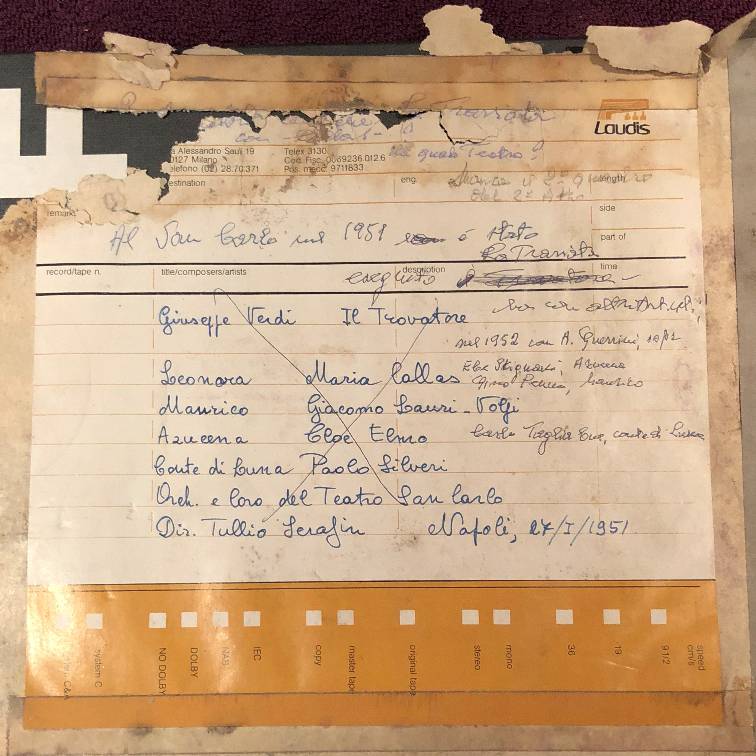 La Traviata
con
Laudis
a Alessandro Sauli 19 Telex 3130
0127 Milano Cod. Fisc. 0069236.012.6
elefono (02) 28.70.371 Pos. mecc. 9711833
in quale Teatro?
destination eng. length
Manca il 2º quadro
del 2º Atto
remarks side
Al San Carlo nel 1951 è stato part of
La Traviata
record/tape n. title/composers/artists description time
eseguito
Giuseppe Verdi Il Trovatore
nel 1952 con A. Guerrini,
Leonora Maria Callas
Ebe Stignani, Azucena
Gino Penno, Manrico
Maurico Giacomo Lauri-Volpi
Azucena Cloe Elmo
Carlo Tagliabue, conte di Luna
Conte di Luna Paolo Silveri
Orch. e Coro del Teatro San Carlo
Dir. Tullio Serafin Napoli, 27/I/1951
system C
NO DOLBY
DOLBY
NAB
IEC
copy
master tape
original tape
stereo
mono
36
19
91/2
speed
cm/s